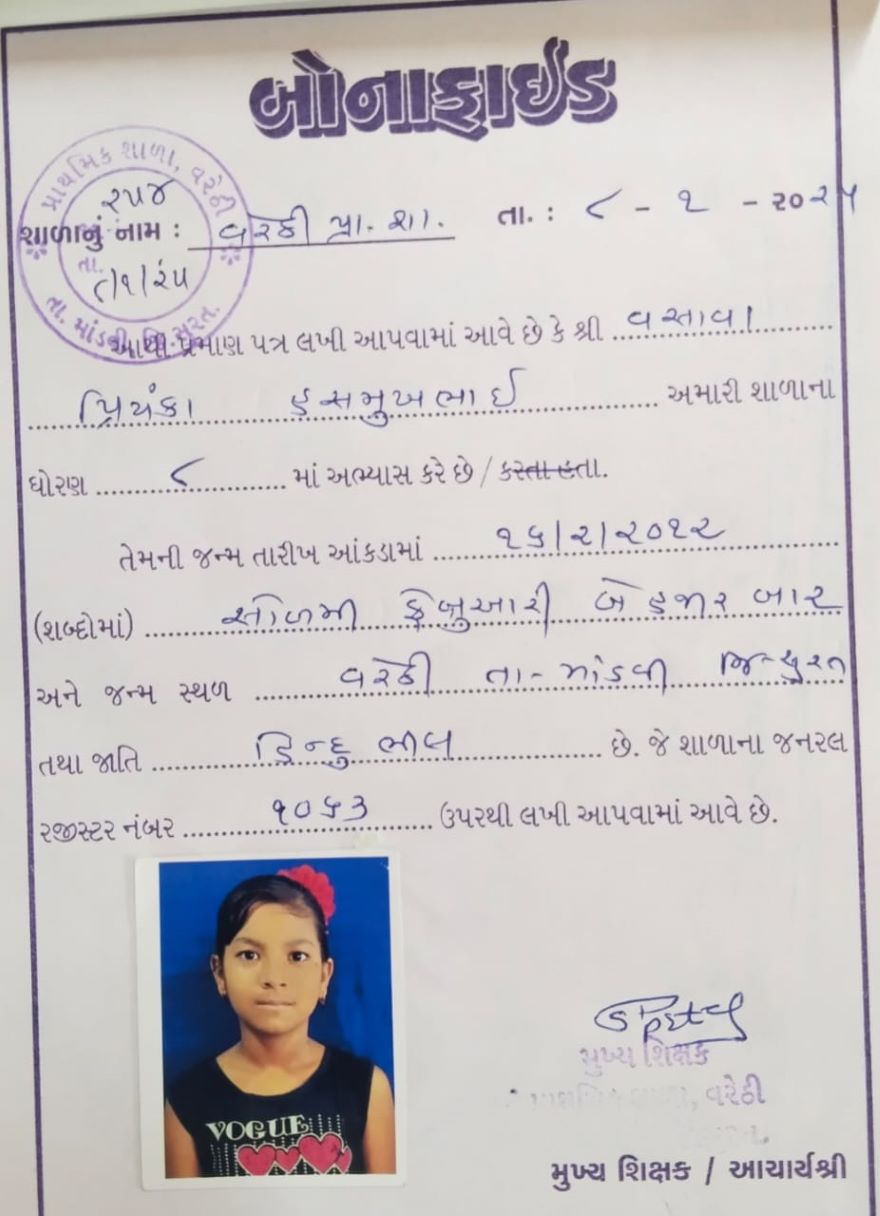 બોનાફાઈડ
પ્રાથમિક શાળા, વરેઠી
૨૫૪
તા. ૮/૧/૨૫
તા. માંડવી, જિ. સુરત.
શાળાનું નામ : વરેઠી પ્રા. શા. તા. : ૮ - ૧ - ૨૦૨૫
આથી પ્રમાણ પત્ર લખી આપવામાં આવે છે કે શ્રી વસાવા
પ્રિયંકા હસમુખભાઈ અમારી શાળાના
ધોરણ ૮ માં અભ્યાસ કરે છે / કરતા હતા.
તેમની જન્મ તારીખ આંકડામાં ૧૬/૨/૨૦૧૨
(શબ્દોમાં) સોળમી ફેબ્રુઆરી બે હજાર બાર
અને જન્મ સ્થળ વરેઠી તા- માંડવી જિ-સુરત
તથા જાતિ હિન્દુ ભીલ છે. જે શાળાના જનરલ
રજીસ્ટર નંબર ૧૦૬૩ ઉપરથી લખી આપવામાં આવે છે.
VOGUE
મુખ્ય શિક્ષક
વરેઠી
મુખ્ય શિક્ષક / આચાર્યશ્રી